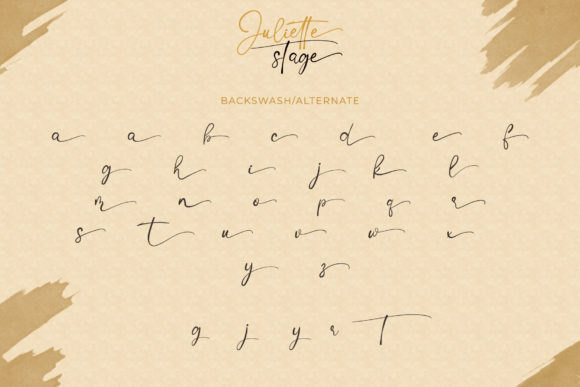 Juliette
stage
BACKSWASH/ALTERNATE
a a b c d e f
g h i j k l
m n o p q r
s t u v w x
y z
g j y r T